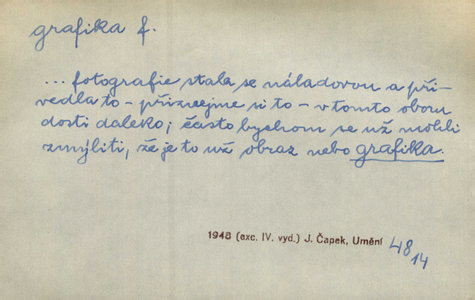 grafika f.
... fotografie stala se náladovou a při-
vedla to - přiznejme si to - v tomto oboru
dosti daleko; často bychom se už mohli
zmýliti, že je to už obraz nebo grafika.
1948 (exc. IV. vyd.) J. Čapek, Umění 48
14